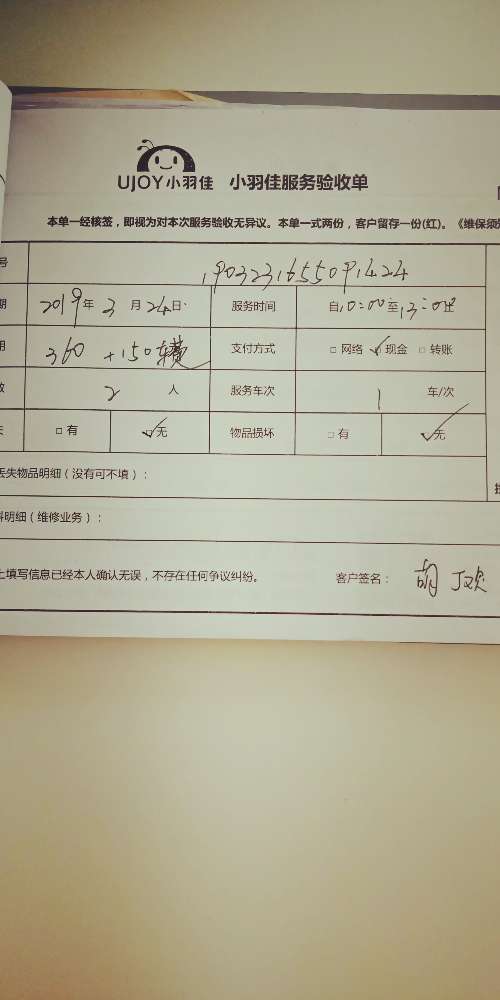 UJOY小羽佳 小羽佳服务验收单
本单一经核签，即视为对本次服务验收无异议。本单一式两份，客户留存一份(红)。《维保须
号 1903231655091424
期 2019年3月24日 服务时间 自10:00至13:00止
用 360+150车费 支付方式 □网络 ☑现金 □转账
2人 服务车次 1车/次
□有 ☑无 物品损坏 □有 ☑无
丢失物品明细（没有可不填）：
料明细（维修业务）：
上填写信息已经本人确认无误，不存在任何争议纠纷。 客户签名：胡